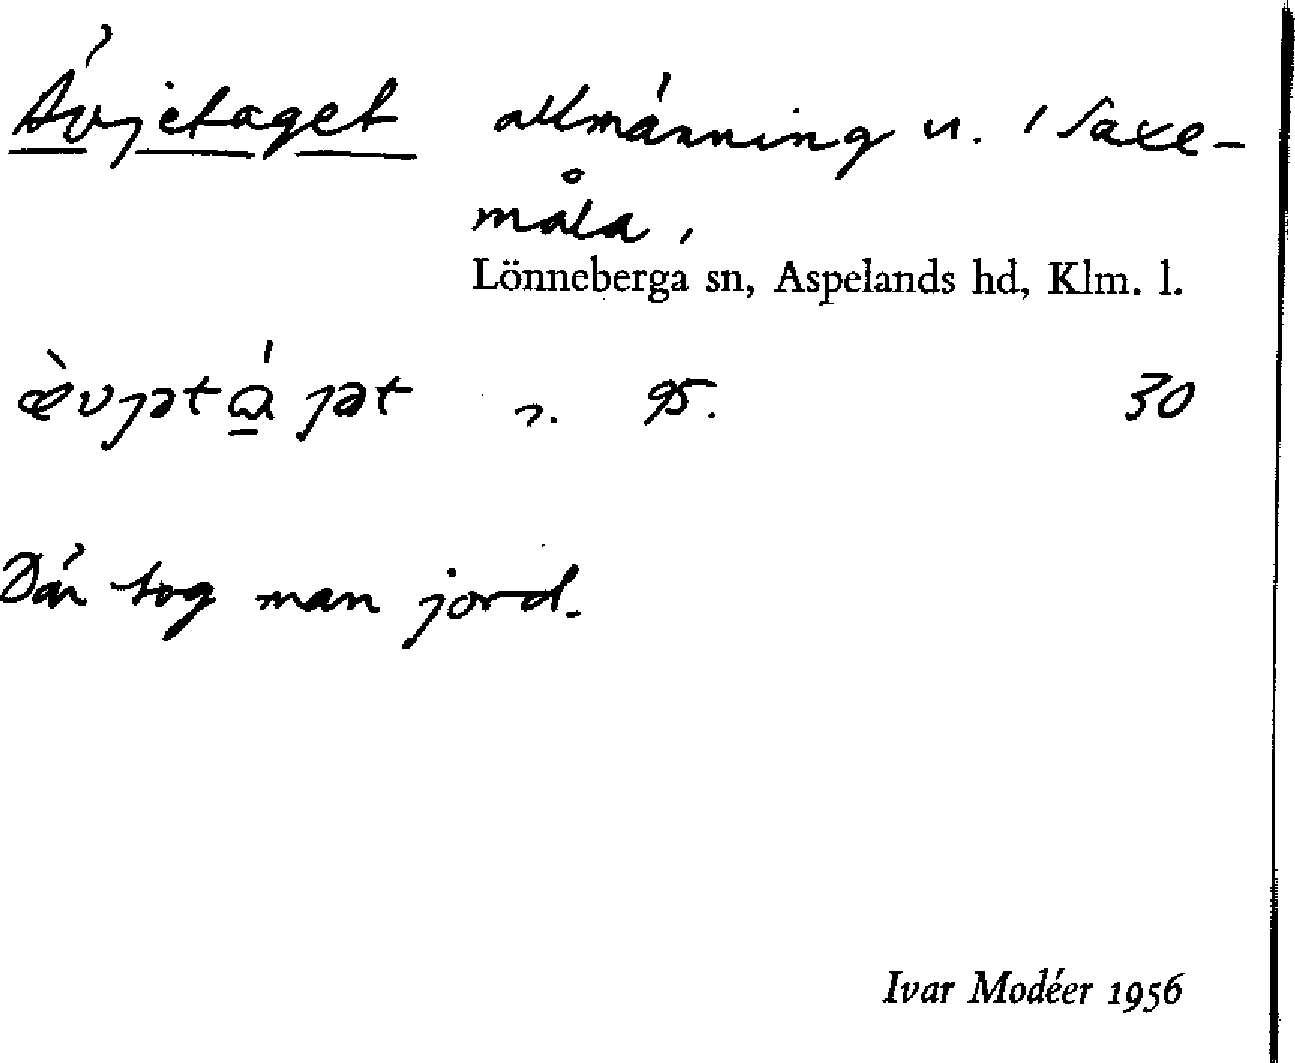 Ävjetaget allmänning n. i Saxe-
måla,
Lönneberga sn, Aspelands hd, Klm. l.
95. 30
Där tog man jord.
Ivar Modéer 1956